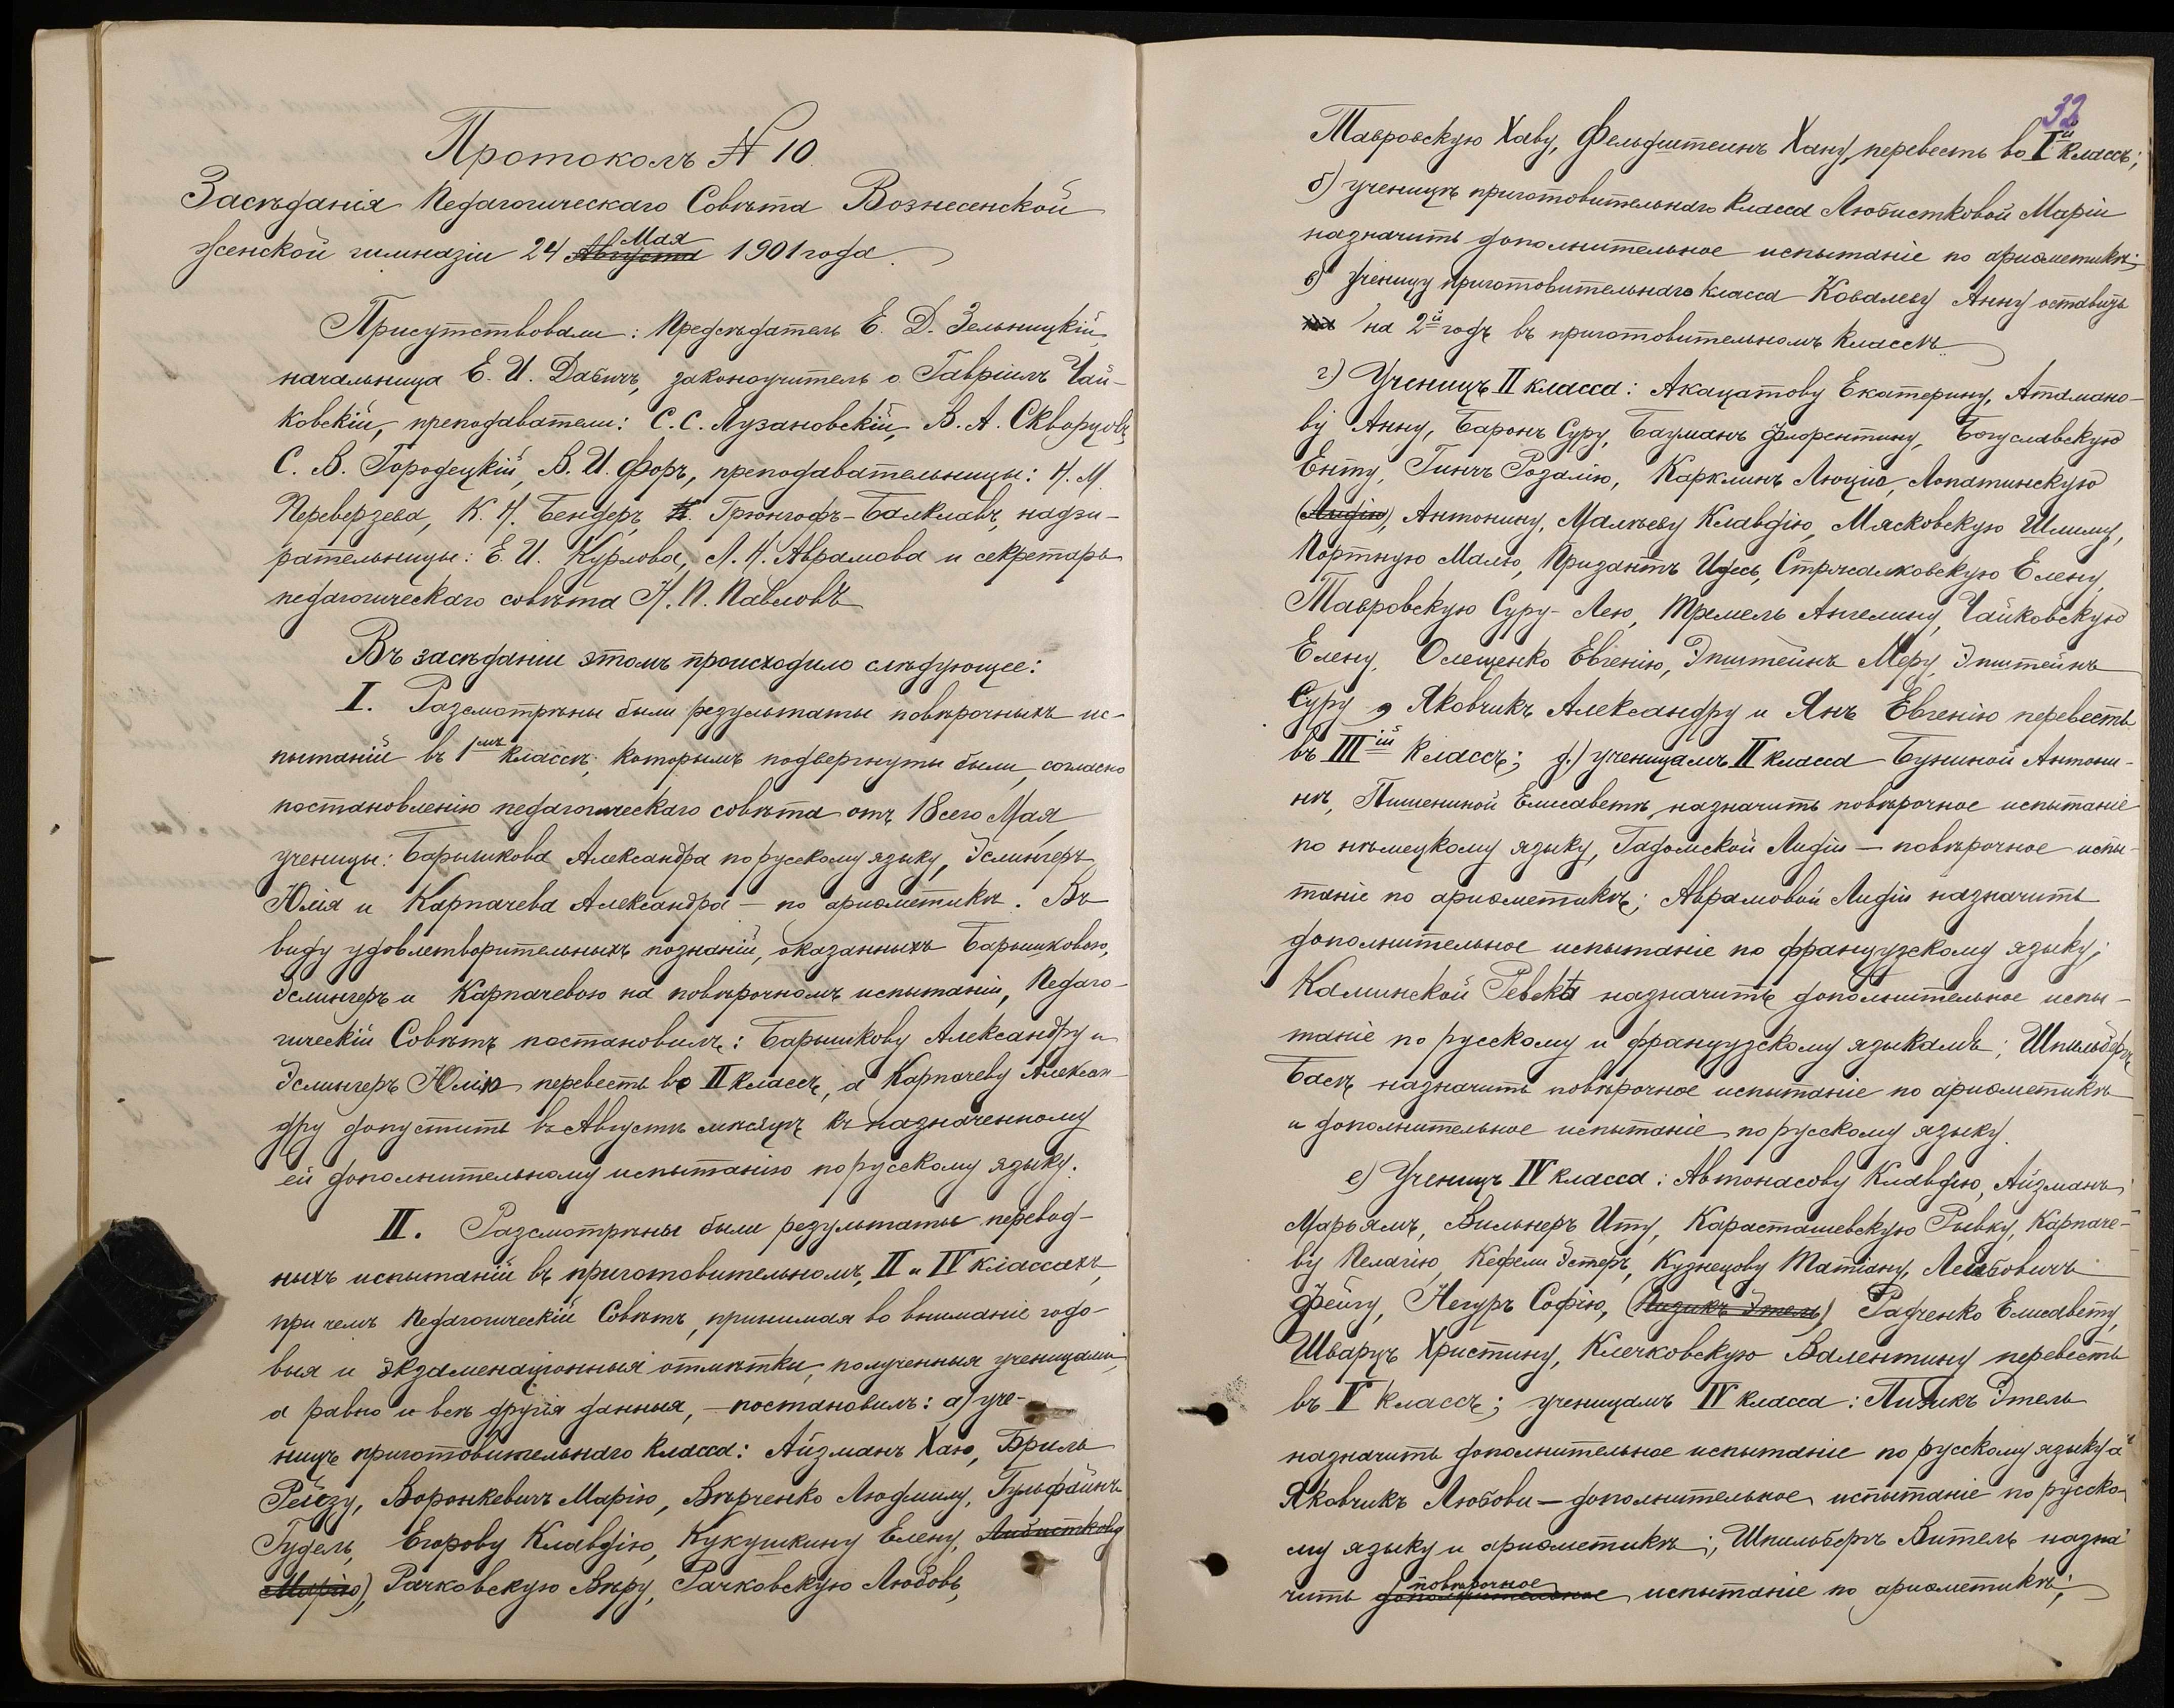 Протоколъ № 10
Засѣданія Педагогическаго Совѣта Вознесенской
Мая
женской гимназіи 24 Августа 1901 года.
Присутствовали: Предсѣдатель Е. Д. Зельницкій,
начальница Е. И. Дабичъ, законоучитель о. Гавріилъ Чай-
ковскій, преподаватели: С. С. Лузановскій, В. А. Скворцовъ,
С. В. Городецкій, В. И. Форъ, преподавательницы: Н. М.
Переверзева, К. Н. Бендеръ, Грюнгофъ-Балклавъ, надзи-
рательницы: Е. И. Курлова, Л. Н. Аврамова и секретарь
педагогическаго совѣта Н. П. Павловъ
Въ засѣданіи этомъ происходило слѣдующее:
I. Разсмотрѣны были результаты повѣрочныхъ ис-
пытаній въ 1мъ классѣ, которымъ подвергнуты были, согласно
постановленію педагогическаго совѣта отъ 18 сего Мая,
ученицы: Барышкова Александра по русскому языку, Эслингеръ
Юлія и Карпачева Александра — по ариѳметикѣ. Въ
виду удовлетворительныхъ познаній, оказанныхъ Барышковою,
Эслингеръ и Карпачевою на повѣрочномъ испытаніи, Педаго-
гическій Совѣтъ постановилъ: Барышкову Александру и
Эслингеръ Юлію перевесть во II классъ, а Карпачеву Алексан-
дру допустить въ Августѣ мѣсяцѣ къ назначенному
ей дополнительному испытанію по русскому языку.
II. Разсмотрѣны были результаты перевод-
ныхъ испытаній въ приготовительномъ, II и IV классахъ,
при чемъ Педагогическій Совѣтъ, принимая во вниманіе годо-
выя и экзаменаціонныя отмѣтки, полученныя ученицами,
а равно и всѣ другія данныя, — постановилъ: а) уче-
ницъ приготовительнаго класса: Айзманъ Хаю, Бриль
Рейзу, Воронкевичъ Марію, Вѣрченко Людмилу, Гульфайнъ
Гудель, Егорову Клавдію, Кукушкину Елену, Любисткову
Марію), Рачковскую Вѣру, Рачковскую Любовь,
32
Тавровскую Хаву, Фельдштеинъ Хану, перевесть во Iй классъ;
б) ученицѣ приготовительнаго класса Любистковой Маріи
назначить дополнительное испытаніе по ариѳметикѣ;
в) Ученицу приготовительнаго класса Ковалеву Анну оставить
на 2й годъ въ приготовительномъ классѣ.
г) Ученицъ II класса: Акацатову Екатерину, Атамано-
ву Анну, Баронъ Суру, Бауманъ Флорентину, Богуславскую
Енту, Гинчъ Розалію, Карклинъ Люцію, Лопатинскую
(Лидію), Антонину, Малѣеву Клавдію, Мясковскую Шлиму,
Портную Малю, Призантъ Идесь, Стржалковскую Елену,
Тавровскую Суру-Лею, Тремель Ангелину, Чайковскую
Елену, Олещенко Евгенію, Эпштейнъ Меру, Эпштейнъ
Суру, Яковчикъ Александру и Янъ Евгенію перевесть
въ IIIій классъ; д) ученицамъ II класса Буниной Антони-
нѣ, Пшениной Елисаветѣ, назначить повѣрочное испытаніе
по нѣмецкому языку, Гадомской Лидіи — повѣрочное испы-
таніе по ариѳметикѣ; Аврамовой Лидіи назначить
дополнительное испытаніе по французскому языку;
Каминской Ревекѣ назначить дополнительное испы-
таніе по русскому и французскому языкамъ; Шпильбергъ
Басѣ назначить повѣрочное испытаніе по ариѳметикѣ
и дополнительное испытаніе по русскому языку.
е) Ученицъ IV класса: Автонасову Клавдію, Айзманъ
Марьямъ, Вильнеръ Иту, Карасташевскую Рывку, Карпаче-
ву Пелагію, Кефели Эстеръ, Кузнецову Татіану, Лейбовичъ
Фейгу, Негуръ Софію, (Пизикъ Этель) Радченко Елисавету,
Шварцъ Христину, Клечковскую Валентину перевесть
въ V классъ; ученицамъ IV класса: Пизикъ Этель
назначить дополнительное испытаніе по русскому языку а
Яковчикъ Любови — дополнительное испытаніе по русско-
му языку и ариѳметикѣ; Шпильбергъ Витель назна-
повѣрочное
чить дополнительное испытаніе по ариѳметикѣ;